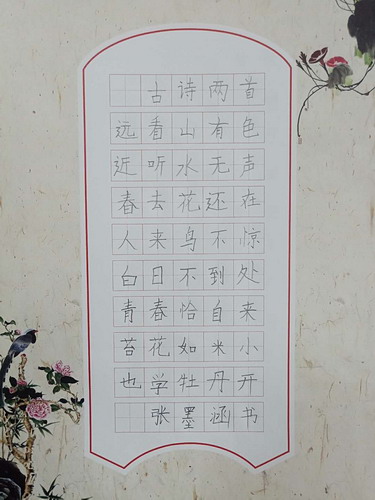 古诗两首
远看山有色
近听水无声
春去花还在
人来鸟不惊
白日不到处
青春恰自来
苔花如米小
也学牡丹开
张墨涵书